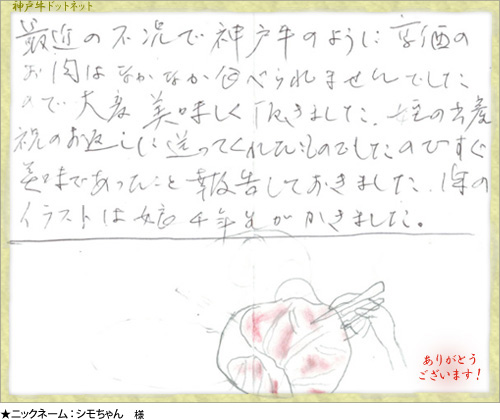 神戸牛ドットネット
最近の不況で神戸牛のように高価の
お肉はなかなか食べられませんでした
ので大変美味しく頂きました、姪の出産
祝のお返しに送ってくれたものでしたのですぐ
美味であったこと報告しておきました、
イラストは娘4年生がかきました。
ありがとう
ございます!
★ニックネーム:シモちゃん 様